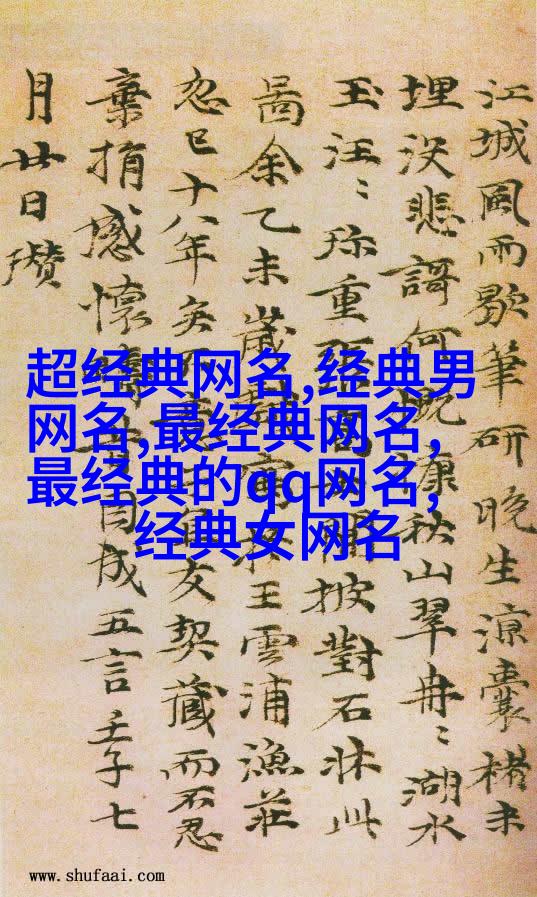 江城風雨歇筆研晚生涼囊楮未
埋没悲謌何慨慷秋山翠冉〻湖水
玉汪〻珎重張
披對石牀此
啚余乙未歲戲
王雲浦漁莊
忽已十八年矣不
友契藏而不忍
棄捐感懷疇昔因成五言壬子七
月廿日瓚
超经典网名,经典男
网名,最经典网名,
最经典的qq网名,
经典女网名
www.shufaai.com